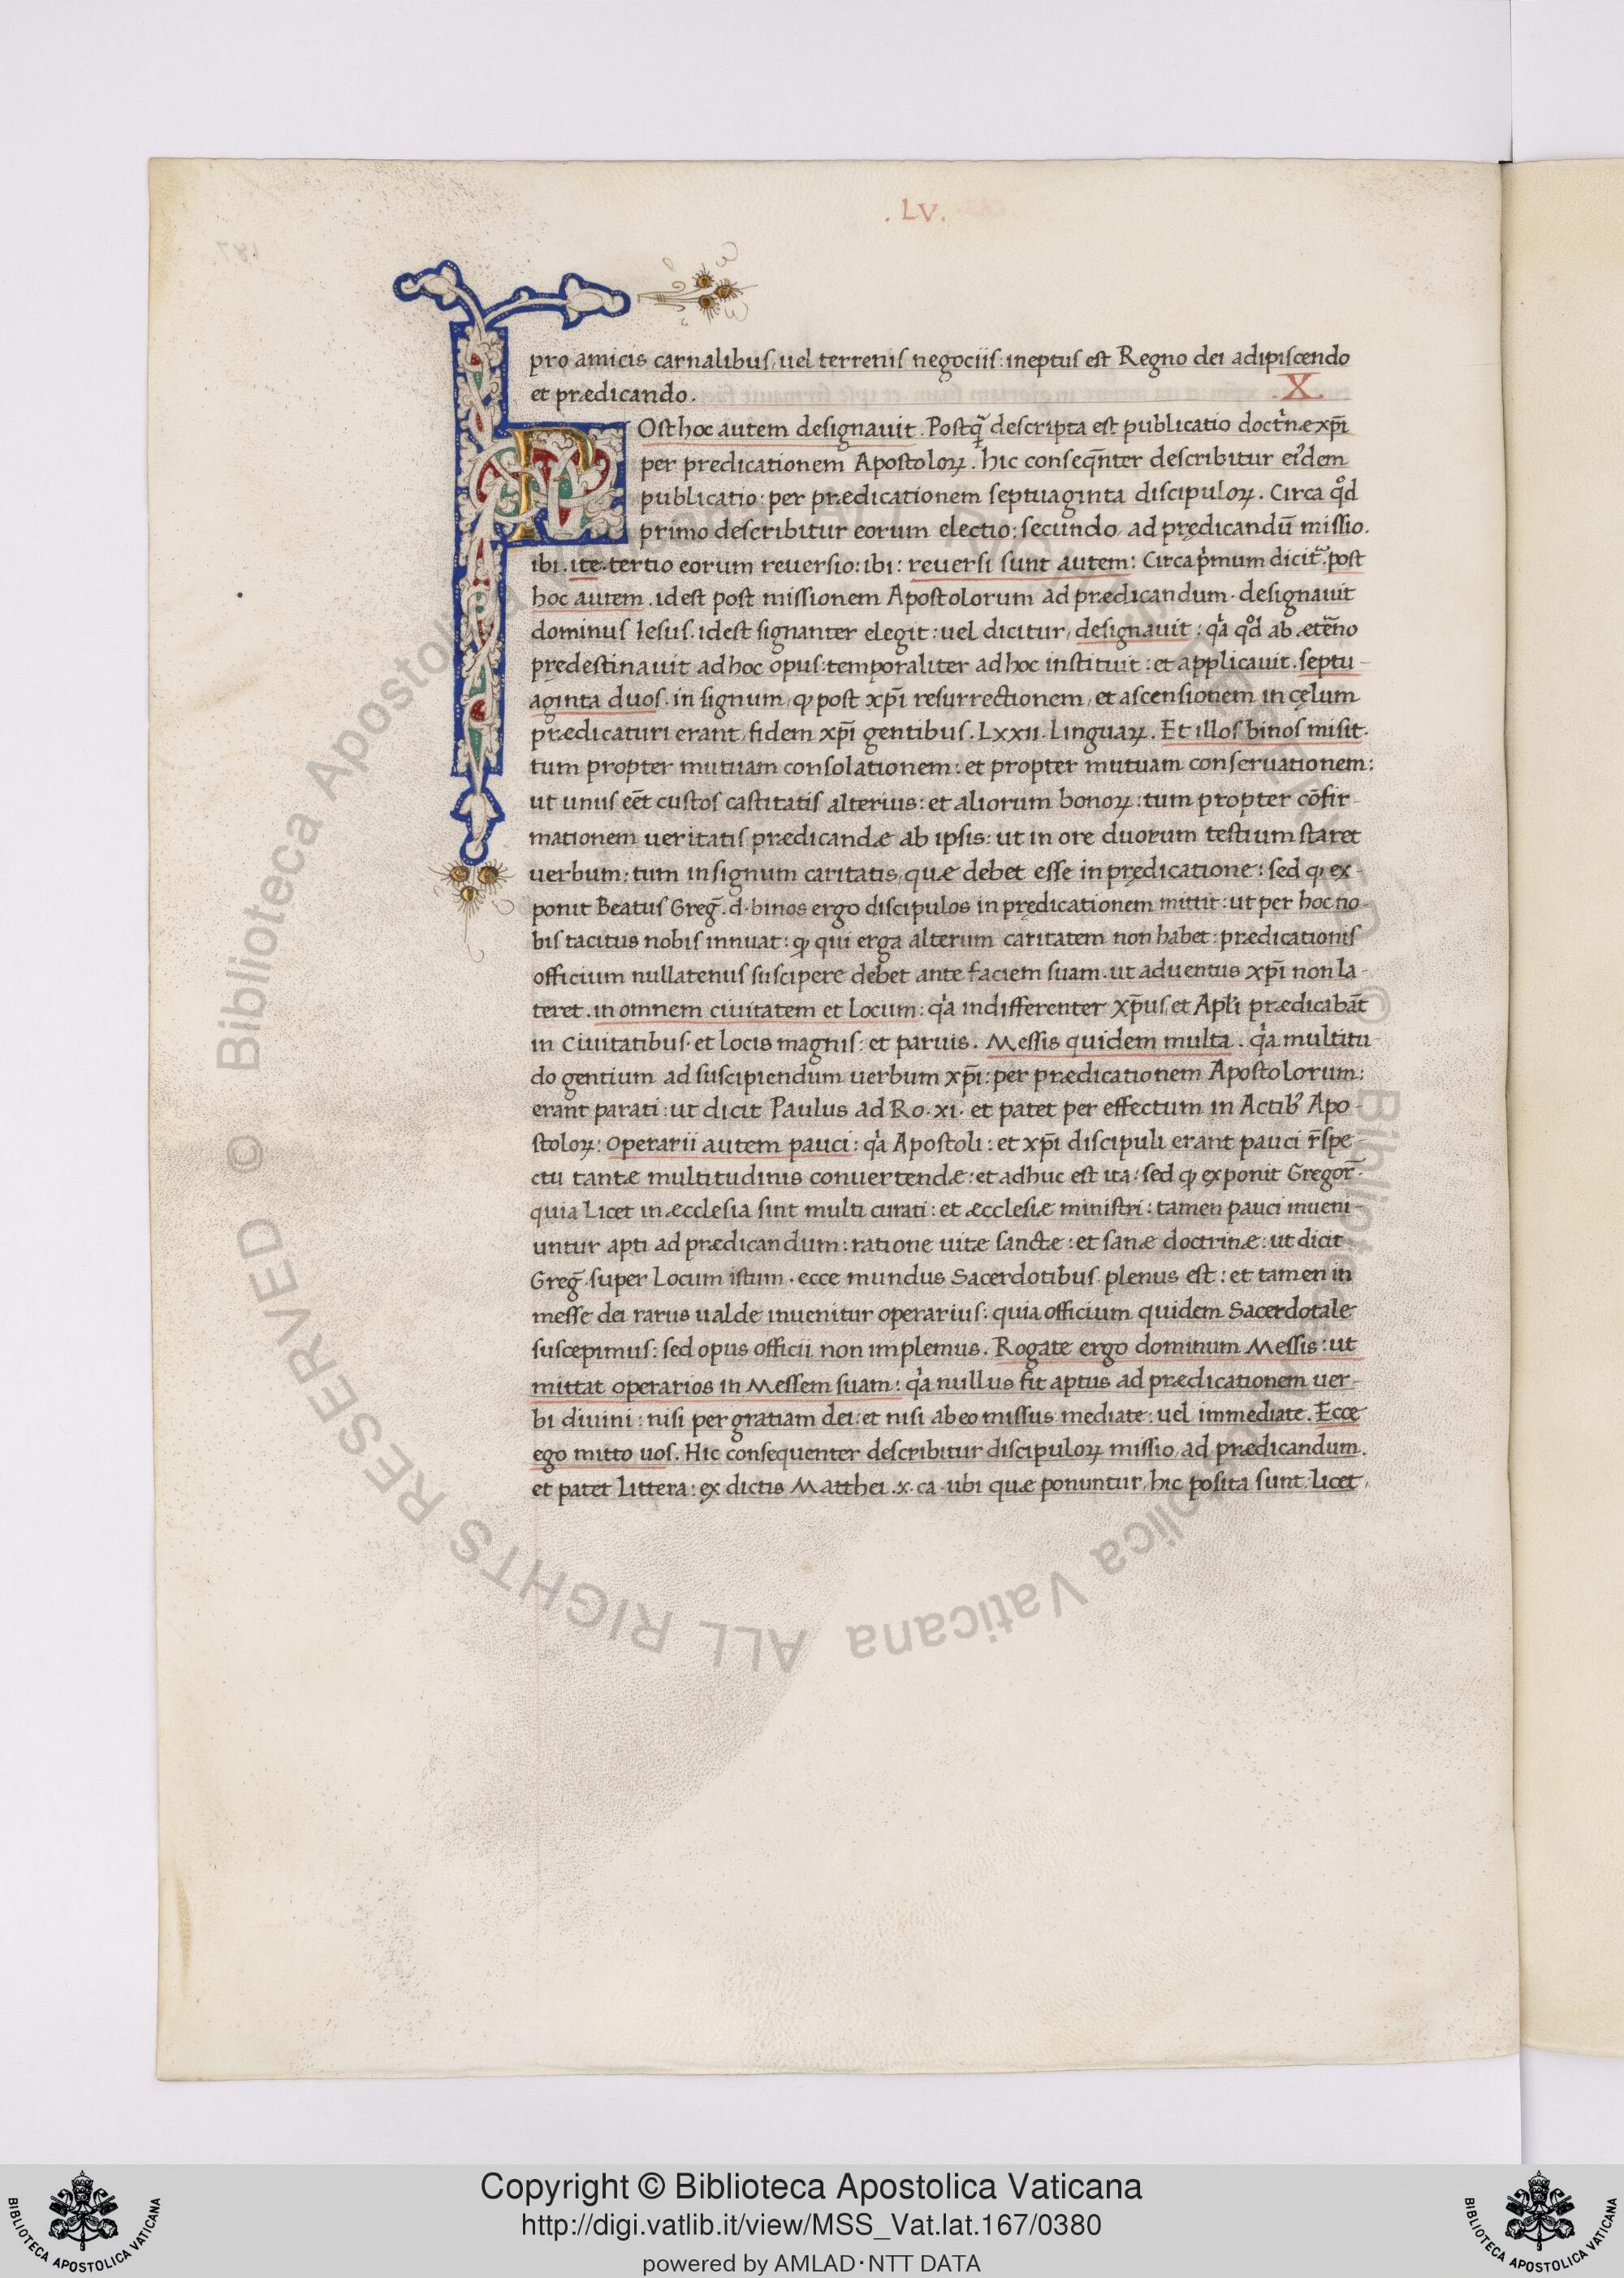 . LV.
pro amicis carnalibus, uel terrenis negociis: ineptus est Regno dei adipiscendo
et prædicando.
.X.
POst hoc autem designauit. Postq̃ descripta est publicatio doctⁱnæ xp̄i
per predicationem Apostoloꝝ. hic conseq̄nter describitur eiꝰdem
publicatio: per prædicationem septuaginta discipuloꝝ. Circa qͦd
primo describitur eorum electio: secundo, ad prędicandū missio.
ibi. ite. tertio eorum reuersio: ibi: reuersi sunt autem: Circa pⁱmum dicit᷑. post
hoc autem. idest post missionem Apostolorum ad prædicandum. designauit
dominus Iesus. idest signanter elegit: uel dicitur, designauit: qͣa qͦd ab æt̄eno
prędestinauit ad hoc opus: temporaliter ad hoc instituit: et applicauit. septu-
aginta duos. in signum, ꝙ post xp̄i resurrectionem, et ascensionem in cęlum
prædicaturi erant, fidem xp̄i gentibus. Lxxii. Linguaꝝ. Et illos binos misit.
tum propter mutuam consolationem: et propter mutuam conseruationem:
ut unus eēt custos castitatis alterius: et aliorum bonoꝝ: tum propter cōfir-
mationem ueritatis prædicandæ ab ipsis: ut in ore duorum testium staret
uerbum: tum in signum caritatis, quæ debet esse in prędicatione: sed ꝙ ex-
ponit Beatus Greḡ. d. binos ergo discipulos in prędicationem mittit: ut per hoc no-
bis tacitus nobis innuat: ꝙ qui erga alterum caritatem non habet: prædicationis
officium nullatenus suscipere debet ante faciem suam. ut aduentus xp̄i non la-
teret. in omnem ciuitatem et Locum: qͣa indifferenter xp̄us, et Apl̄i prædicabāt
in Ciuitatibus. et locis magnis: et paruis. Messis quidem multa. qͣa multitu-
do gentium ad suscipiendum uerbum xp̄i: per prædicationem Apostolorum:
erant parati: ut dicit Paulus ad Ro. xi. et patet per effectum in Actibꝰ Apo-
stoloꝝ: Operarii autem pauci: qͣa Apostoli: et xp̄i discipuli erant pauci r̄spe-
ctu tantæ multitudinis conuertendæ: et adhuc est ita: sed ꝙ exponit Gregor̄.
quia Licet in æcclesia sint multi curati: et æcclesiæ ministri: tamen pauci inueni-
untur apti ad prædicandum: ratione uitæ sanctæ: et sanæ doctrinæ: ut dicit
Greḡ. super Locum istum. ecce mundus Sacerdotibus plenus est: et tamen in
messe dei rarus ualde inuenitur operarius: quia officium quidem Sacerdotale
suscepimus: sed opus officii non implemus. Rogate ergo dominum Messis: ut
mittat operarios in Messem suam: qͣa nullus fit aptus ad prædicationem uer-
bi diuini: nisi per gratiam dei: et nisi ab eo missus mediate: uel immediate. Ecce
ego mitto uos. Hic consequenter describitur discipuloꝝ missio, ad prædicandum.
et patet Littera: ex dictis Matthei. x. ca. ubi quæ ponuntur, hic posita sunt: licet,
© Biblioteca Apostolica Vaticana ALL RIGHTS RESERVED
Copyright © Biblioteca Apostolica Vaticana
http://digi.vatlib.it/view/MSS_Vat.lat.167/0380
powered by AMLAD·NTT DATA
BIBLIOTECA APOSTOLICA VATICANA
BIBLIOTECA APOSTOLICA VATICANA